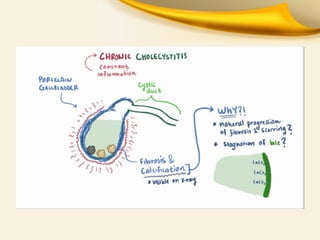 CHRONIC CHOLECYSTITIS
constant
inflammation
PORCELAIN
GALLBLADDER
Cystic
duct
WHY?!
* natural progression
of fibrosis & scarring?
* Stagnation of bile?
Fibrosis &
Calcification
* visible on x-ray
CaCO₃
CaCO₃
CaCO₃